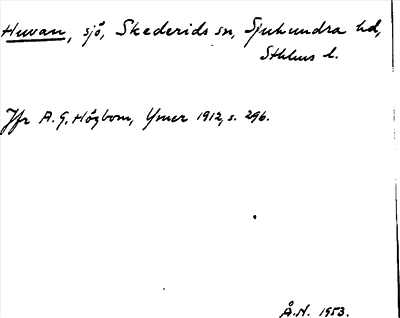 Huvan, sjö, Skederids sn, Sjuhundra hd,
Sthlms l.
Jfr A. G. Högbom, Ymer 1912, s. 296.
Å.N. 1953.